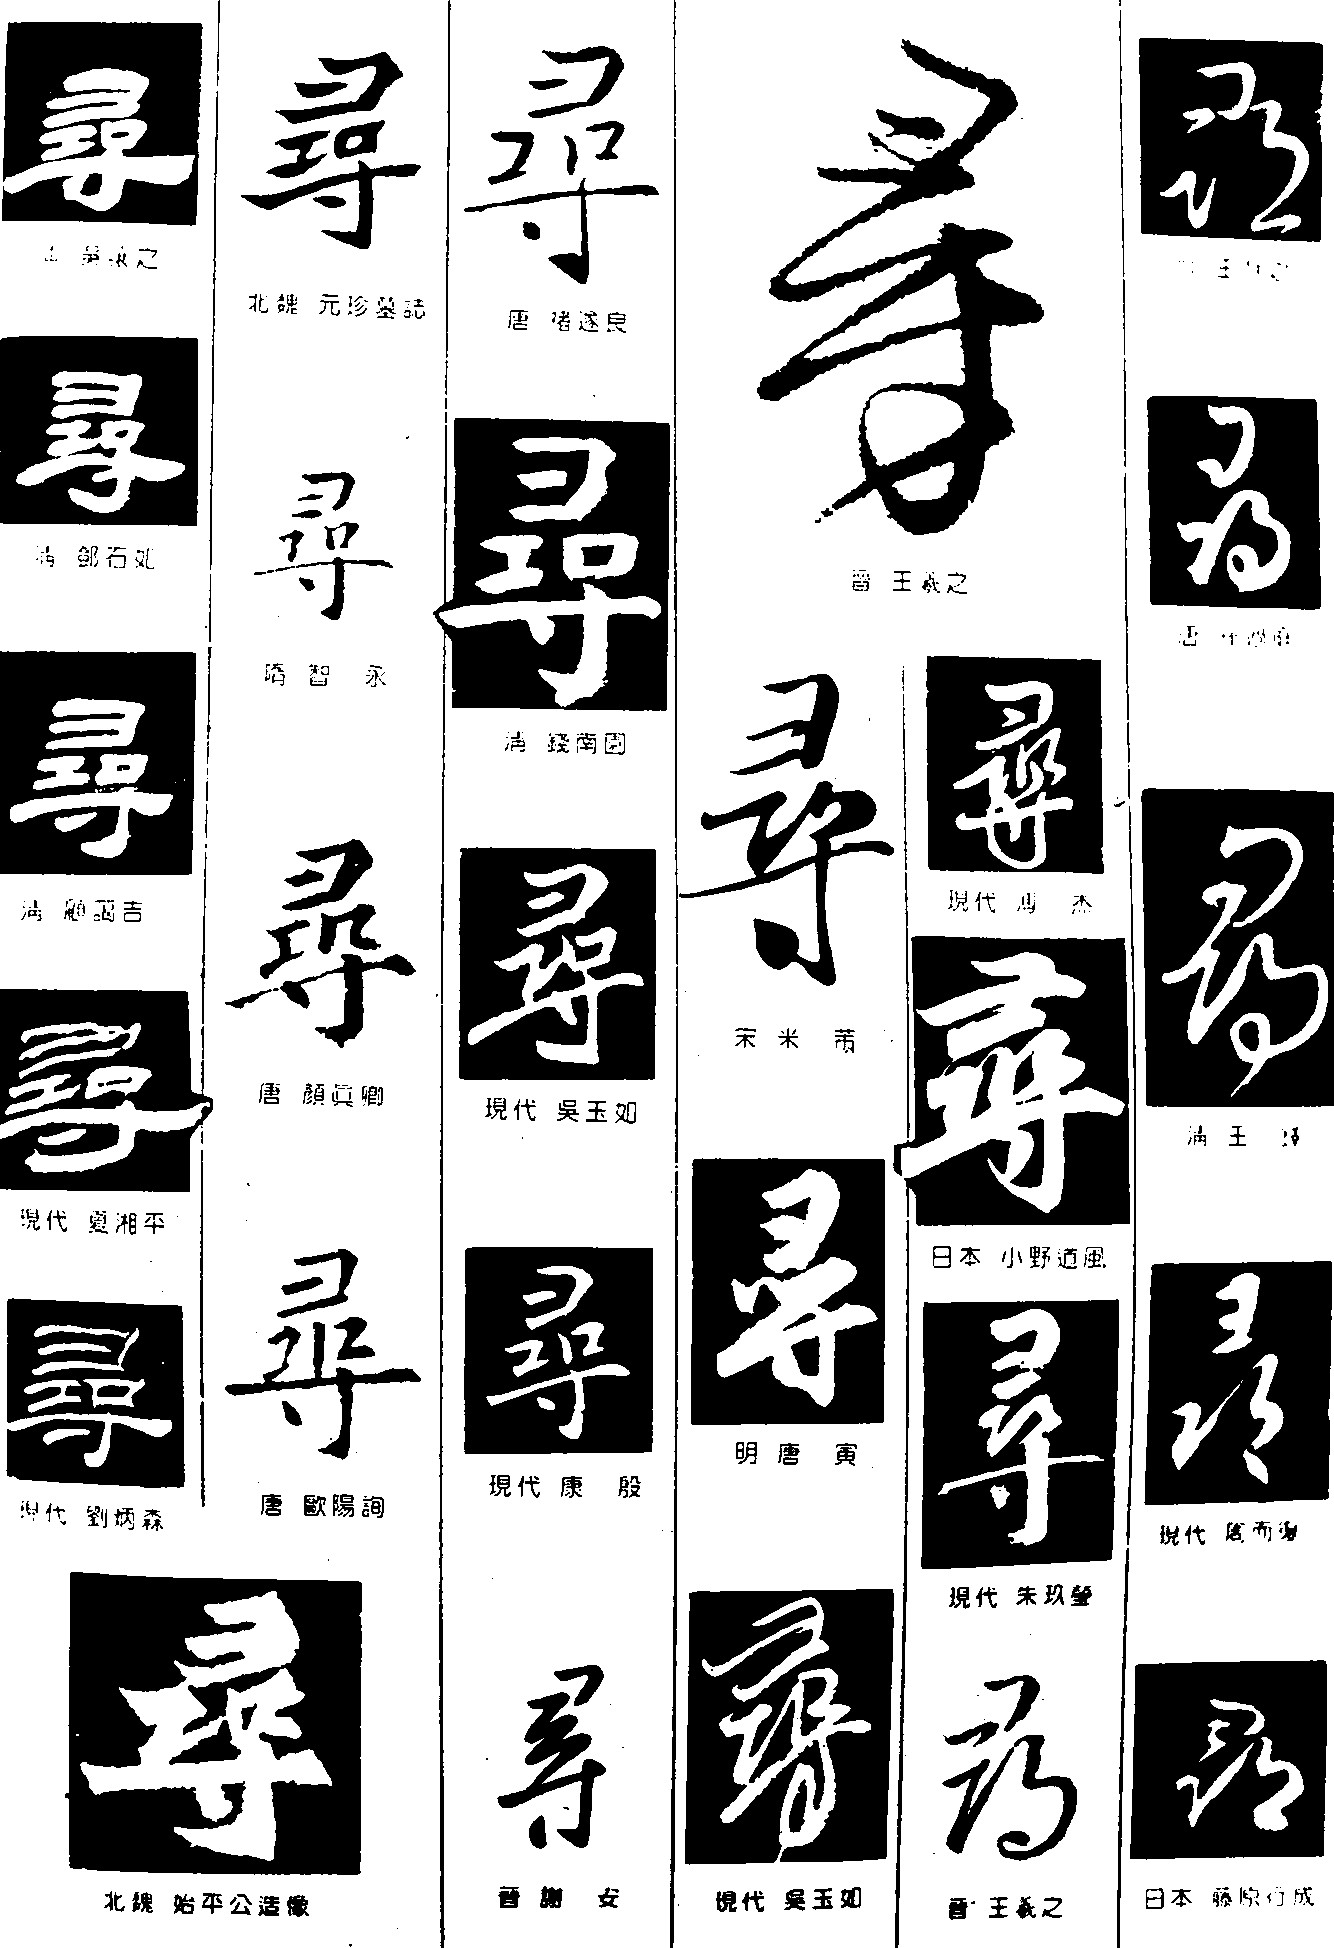 尋
尋
清 鄧石如
尋
清 顧藹吉
尋
現代 夏湘平
尋
現代 劉炳森
尋
北魏 始平公造像
尋
北魏 元珍墓誌
尋
隋 智永
尋
唐 顏真卿
尋
唐 歐陽詢
尋
唐 褚遂良
尋
清 錢南園
尋
現代 吳玉如
尋
現代 康殷
尋
晉 謝安
尋
晉 王羲之
尋
宋 米芾
尋
明 唐寅
尋
現代 吳玉如
尋
現代 溥杰
尋
日本 小野道風
尋
現代 朱玖瑩
尋
晉 王羲之
尋
尋
唐
尋
清 王
尋
現代 周而復
尋
日本 藤原行成